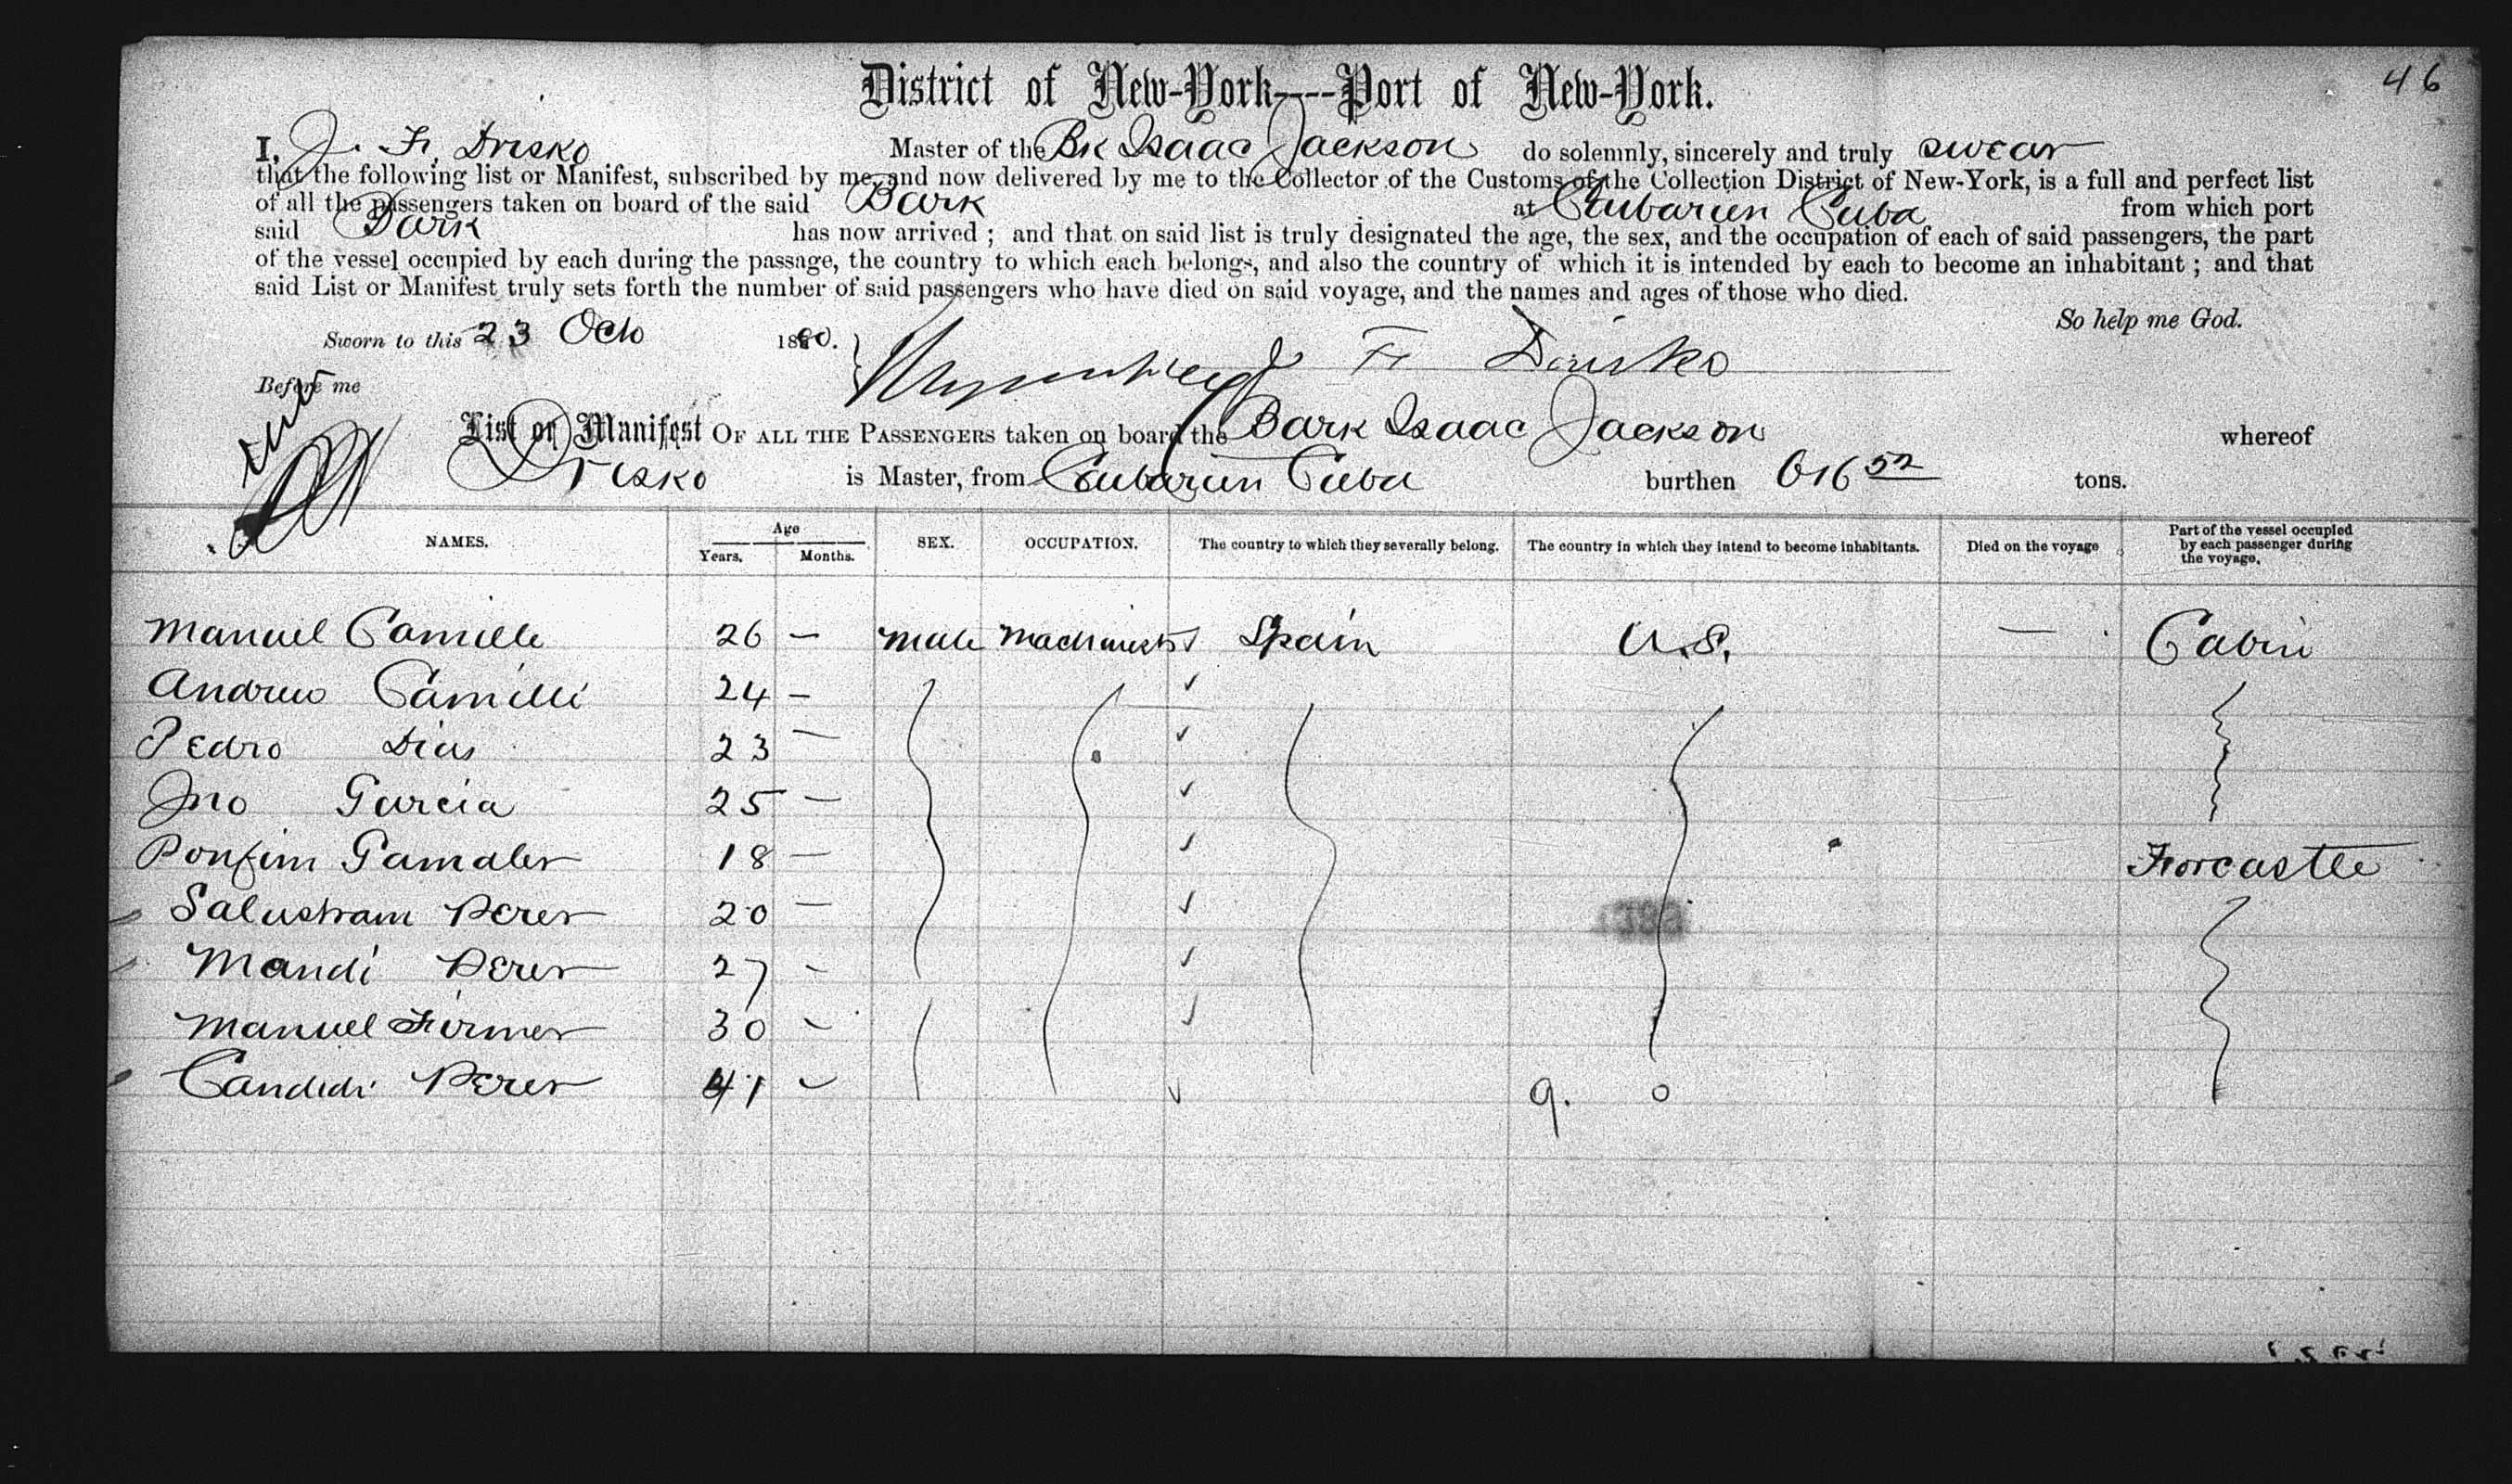 46
District of New-York----Port of New-York.
I, J. F. Drisko Master of the Bk Isaac Jackson do solemnly, sincerely and truly swear
that the following list or Manifest, subscribed by me, and now delivered by me to the Collector of the Customs of the Collection District of New-York, is a full and perfect list
of all the passengers taken on board of the said Bark at Caibarien Cuba from which port
said Bark has now arrived ; and that on said list is truly designated the age, the sex, and the occupation of each of said passengers, the part
of the vessel occupied by each during the passage, the country to which each belongs, and also the country of which it is intended by each to become an inhabitant ; and that
said List or Manifest truly sets forth the number of said passengers who have died on said voyage, and the names and ages of those who died.
So help me God.
Sworn to this 23 Octo 1880. J F Drisko
Before me
List or Manifest OF ALL THE PASSENGERS taken on board the Bark Isaac Jackson whereof
Drisko is Master, from Caibarien Cuba burthen 616 52 tons.
NAMES. Age Years. Months. SEX. OCCUPATION. The country to which they severally belong. The country in which they intend to become inhabitants. Died on the voyage Part of the vessel occupied by each passenger during the voyage.
Manuel Camille 26 — Male Machinist Spain U.S. — Cabin
Andrew Camilli 24 —
Pedro Dias 23 —
Jno Garcia 25 —
Ponfim Gamaler 18 — Forcastle
Salustram Perer 20 —
Mandi Perer 27 -
Manuel Firmer 30 -
Candidi Perer 41 - 9. 0